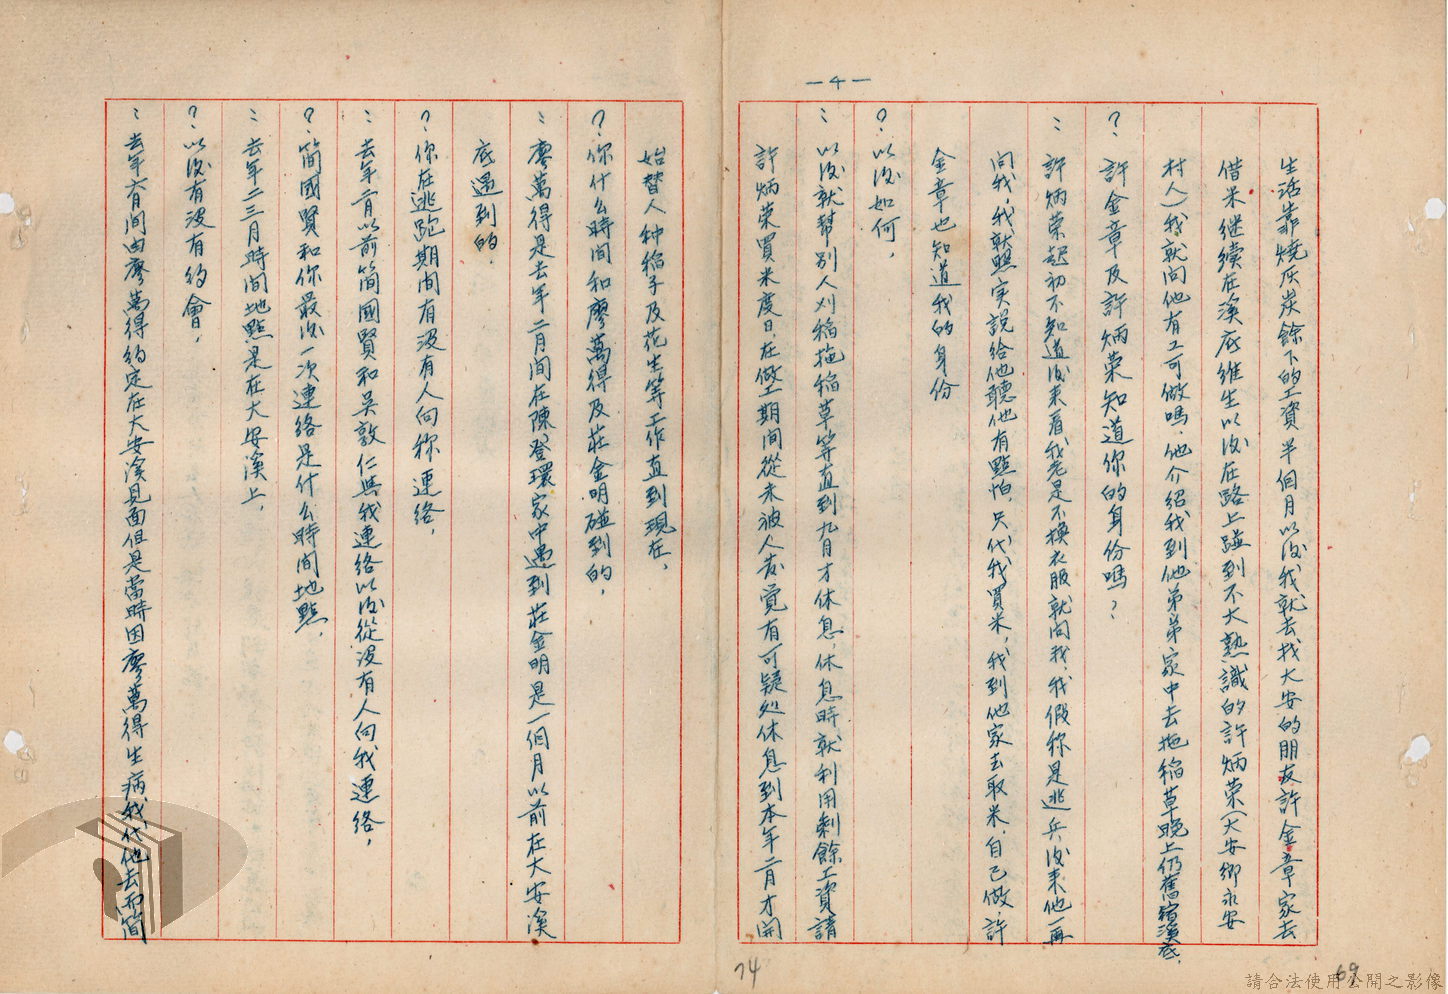 —4—
生活靠燒灰炭餘下的工資半個月以後我就去找大安的朋友許金章家去
借米继续在溪底維生以後在路上踫到不大熟識的許炳荣(大安鄉永安
村人)我就问他有工可做嗎,他介绍我到他弟弟家中去拖稲草晚上仍舊宿溪底,
?:許金章及許炳荣知道你的身份嗎?
:許炳荣起初不知道後来看我老是不换衣服就问我,我假称是逃兵後来他一再
问我,我就照实説给他聽他有點怕,只代我買米,我到他家去取米,自己做,許
金章也知道我的身份
?:以後如何,
:以後就幫別人刈稲拖稲草等直到九月才休息,休息時就利用剩餘工資請
許炳荣買米度日,在做工期间從未被人发觉有可疑处休息到本年二月才開
始替人种稲子及花生等工作直到現在,
?:你什么時间和廖萬得及莊金明碰到的,
:廖萬得是去年二月间在陳登環家中遇到莊金明是一個月以前在大安溪
底遇到的,
?:你在逃跑期间有没有人向称連络,
:去年二月以前简國賢和吴敦仁與我連络以後從没有人向我連络,
?:简國賢和你最後一次連络是什么時间地點,
:去年二三月時间地點是在大安溪上,
?:以後有没有约會,
:去年六月间由廖萬得约定在大安溪見面但是當時因廖萬得生病我代他去而简
74
69
請合法使用公開之影像